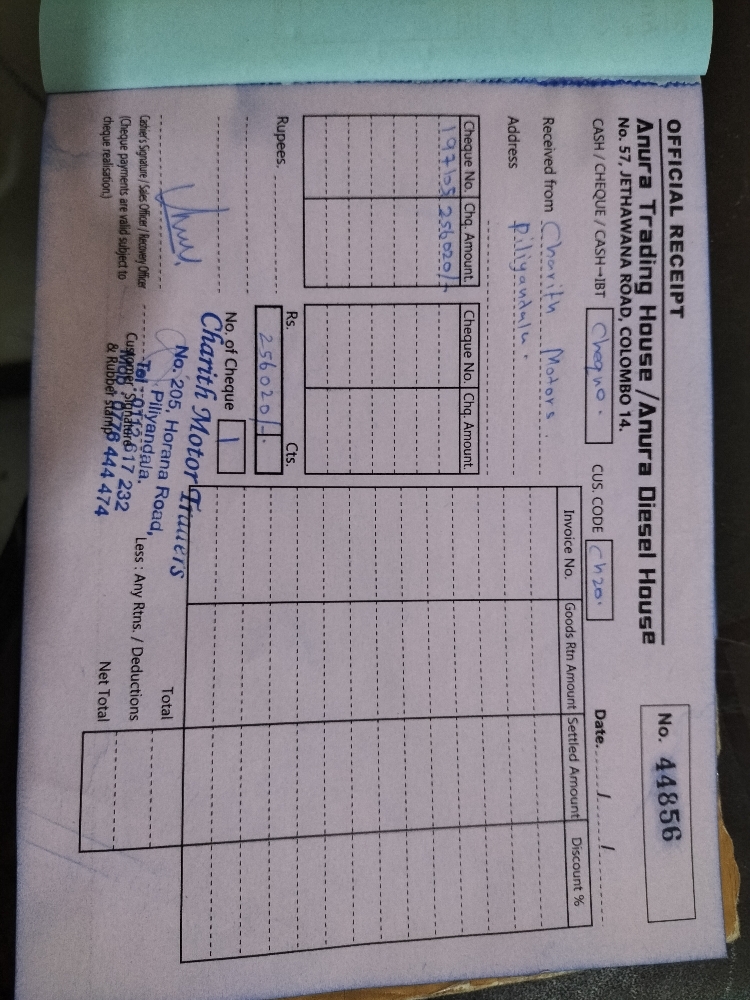 OFFICIAL RECEIPT
Anura Trading House /Anura Diesel House
No. 57, JETHAWANA ROAD, COLOMBO 14.
No. 44856
CASH / CHEQUE / CASH→IBT Cheque. CUS. CODE Ch20. Date....../....../......
Received from Charith Motors.
Address Piliyandala.
Cheque No. Chq. Amount. Cheque No. Chq. Amount.
256020/-
Invoice No. Goods Rtn Amount Settled Amount Discount %
Rupees. Rs. 256020/- Cts.
No. of Cheque 1
Charith Motor Traders
No. 205, Horana Road,
Piliyandala.
Tel : 0112 617 232
0778 444 474
Cashier's Signature / Sales Officer / Recovery Officer
(Cheque payments are valid subject to
cheque realisation.)
Customer Signature
& Rubber Stamp
Total
Less : Any Rtns. / Deductions
Net Total